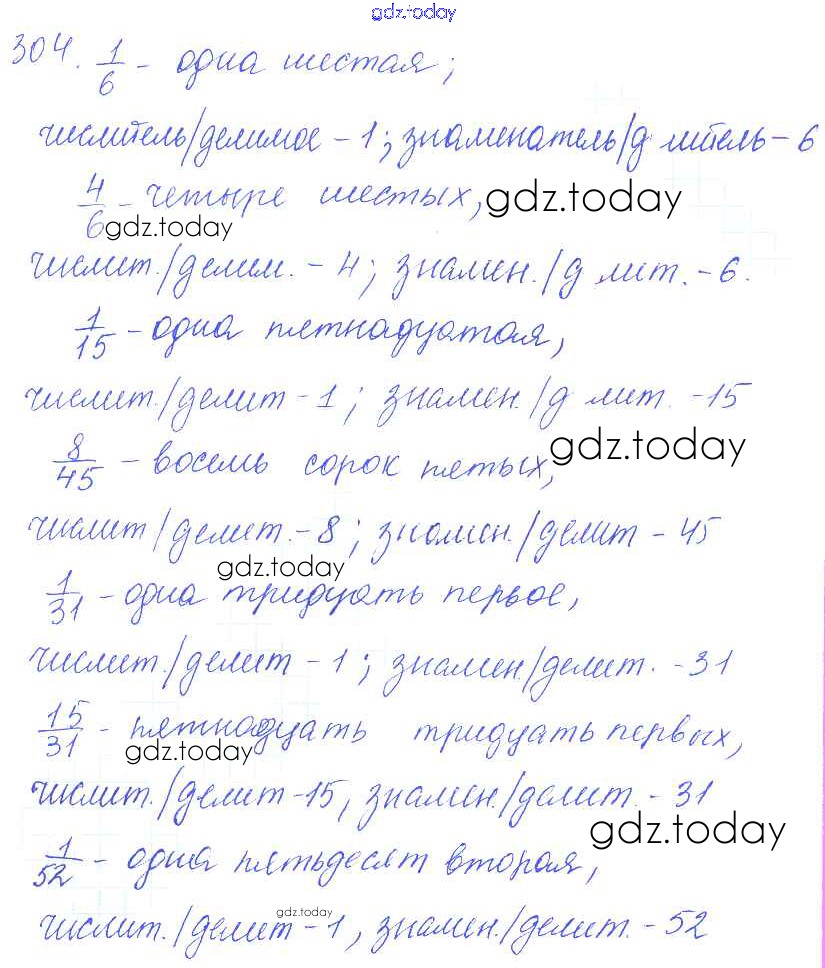 gdz.today
304. 1/6 - одна шестая;
числитель/делимое - 1; знаменатель/д литель - 6
4/6 - четыре шестых, gdz.today
gdz.today
числит./делим. - 4; знамен./д лит. - 6.
1/15 - одна пятнадцатая,
числит./делит - 1; знамен./д лит. - 15
8/45 - восемь сорок пятых, gdz.today
числит/делит. - 8; знамен./делит - 45
gdz.today
1/31 - одна тридцать первое,
числит./делит - 1; знамен/делит. - 31
15/31 - пятнадцать тридцать первых,
gdz.today
числит./делит - 15, знамен./делит. - 31
gdz.today
1/52 - одна пятьдесят вторая,
gdz.today
числит./делит - 1, знамен./делит. - 52